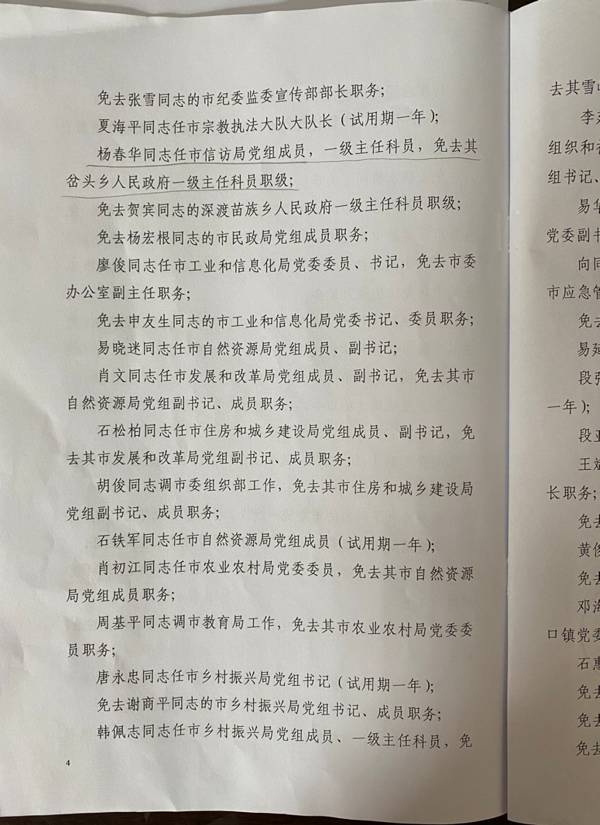 免去张雪同志的市纪委监委宣传部部长职务;
夏海平同志任市宗教执法大队大队长(试用期一年);
杨春华同志任市信访局党组成员，一级主任科员，免去其
岔头乡人民政府一级主任科员职级;
免去贺宾同志的深渡苗族乡人民政府一级主任科员职级;
免去杨宏根同志的市民政局党组成员职务;
廖俊同志任市工业和信息化局党委委员、书记，免去市委
办公室副主任职务;
免去申友生同志的市工业和信息化局党委书记、委员职务;
易晓迷同志任市自然资源局党组成员、副书记;
肖文同志任市发展和改革局党组成员、副书记，免去其市
自然资源局党组副书记、成员职务;
石松柏同志任市住房和城乡建设局党组成员、副书记，免
去其市发展和改革局党组副书记、成员职务;
胡俊同志调市委组织部工作，免去其市住房和城乡建设局
党组副书记、成员职务;
石铁军同志任市自然资源局党组成员(试用期一年);
肖初江同志任市农业农村局党委委员，免去其市自然资源
局党组成员职务;
周基平同志调市教育局工作，免去其市农业农村局党委委
员职务;
唐永忠同志任市乡村振兴局党组书记(试用期一年);
免去谢商平同志的市乡村振兴局党组书记、成员职务;
韩佩志同志任市乡村振兴局党组成员、一级主任科员，免
4
去其雪
李
组织和
组书记、
易华
党委副书
向同
市应急管
免去
易延
段
一年);
段
王斌
长职务;
免去
黄俊
免去
邓海
口镇党委
石惠
免去
免去
免去